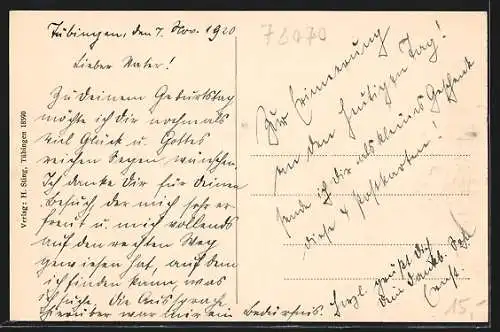 Tübingen, den 7. Nov. 1920
Lieber Vater!
Zu Deinem Geburtstag
möchte ich dir nochmals
viel Glück u. Gottes
reichen Segen wünschen.
Ich danke Dir für Deinen
Besuch, der mich sehr er-
freut u. mich vollends
auf den rechten Weg
gewiesen hat, auf dem
ich finden kann, was
ich suche. Die Aussprache
hierüber war mir ein
Bedürfnis.
78070
Zur Erinnerung
an den heutigen Tag!
sende ich dir als kleines Geschenk
diese 4 Postkarten!
Herzl. grüßt Dich
Dein dankb. Sohn
Ernst.
15,-
Verlag: H. Sting, Tübingen 1899